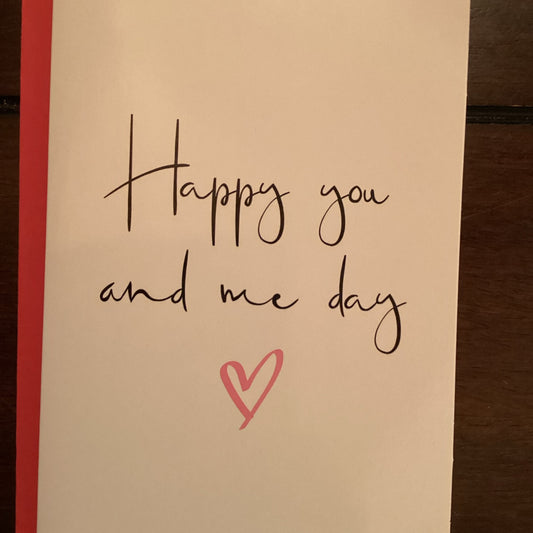 Happy you
and me day